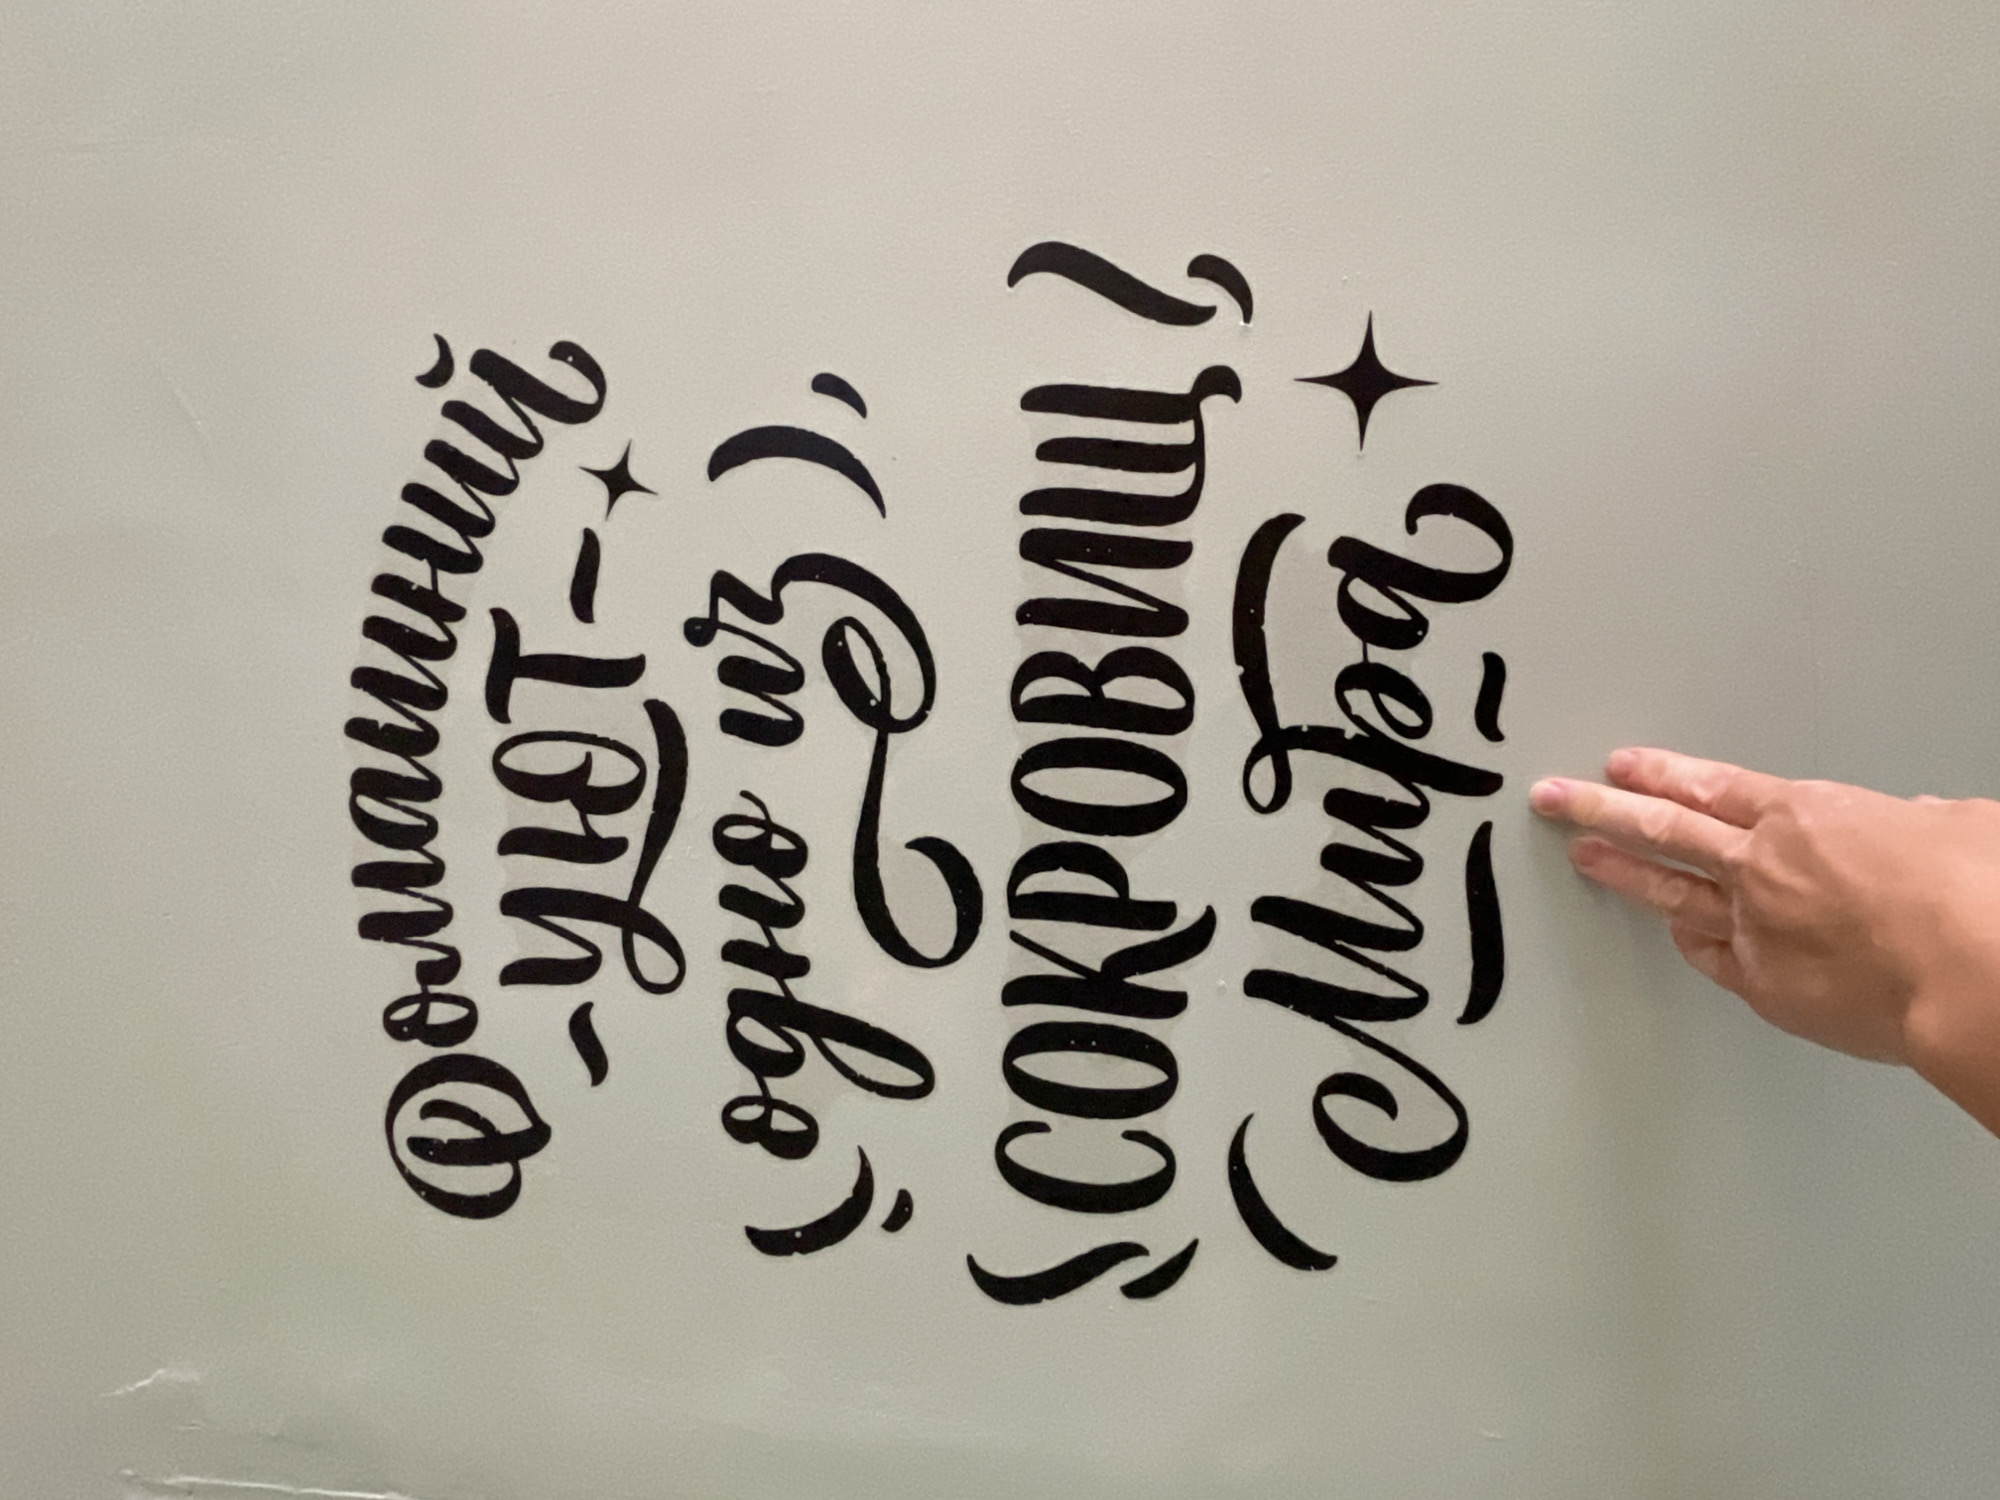 Домашний
УЮТ
одно из
СОКРОВИЩ
Мира